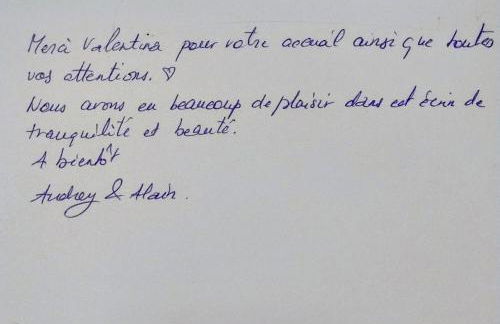 Merci Valentina pour votre accueil ainsi que toutes
vos attentions. ♡
Nous avons eu beaucoup de plaisir dans cet écrin de
tranquilité et beauté.
A bientôt
Audrey & Alain.